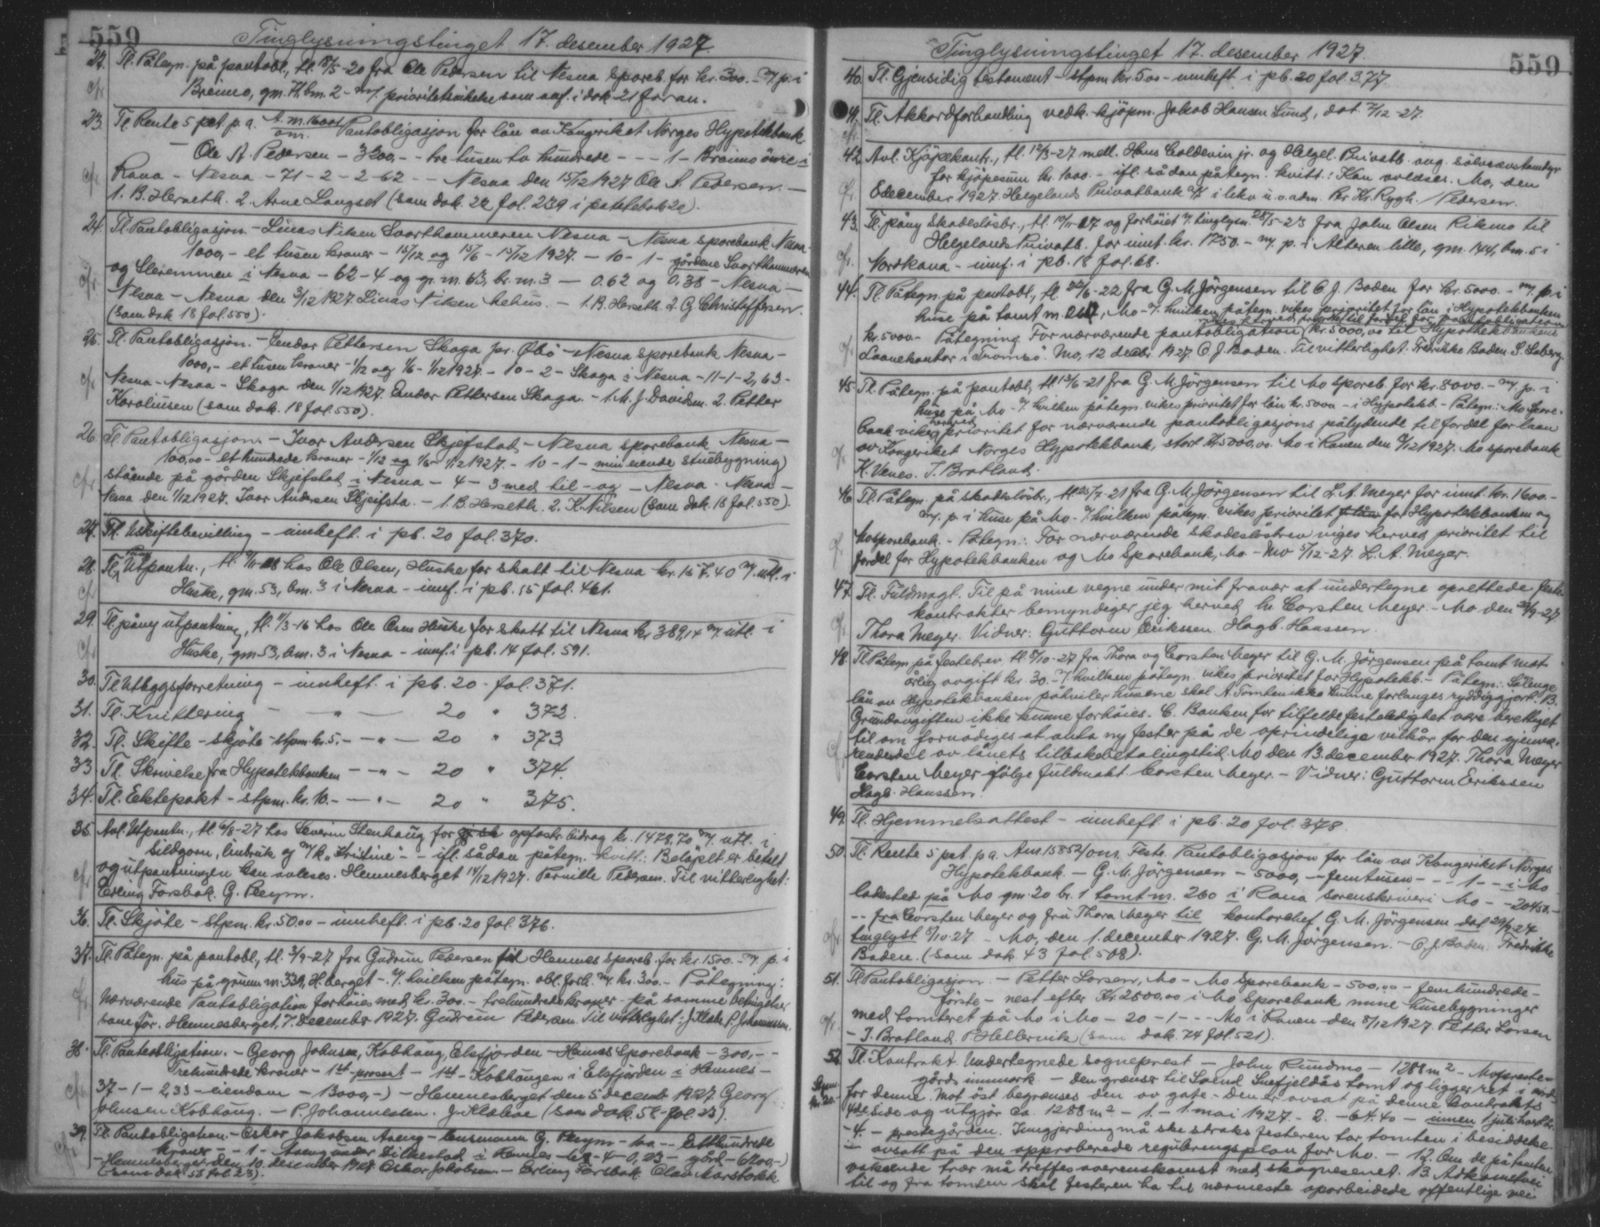 559
Tinglysningstinget 17. desember 1927.
22. Tl. Påtegn. på pantobl., tl. 18/5-20 fra Ole Pedersen til Nesna Spareb. for kr. 300.- m/ p. i
Brenno, gm. 71, bm. 2 - m/ prioritetsvikelse som anf. i dok. 21 foran.
23. Tl. Rente 5 pct. p. a. Pantobligasjon for lån av Kongeriket Norges Hypotekbank
Ole A. Pedersen - 3200,- tre tusen to hundrede - - - 1 - Breimo övre i
Rana - Nesna - 71 - 2 - 2 - 62 - - Nesna den 15/12 1927 Ole A. Pedersen -
1. B. Herseth. 2. Arne Langset (som dok 22 fol. 279 i
24. Tl. Pantobligasjon - Linas Nilsen Svorthammeren Nesna - Nesna sparebank Nesna -
1000,- et tusen kroner - 15/12 og 15/6 - 15/12 1927. - 10 - 1 - gårdene Svorthammeren
og Sleremmen i Nesna - 62 - 4 og gr. m. 63, br. m. 3 - 0.62 og 0.38 - Nesna -
Nesna - Nesna den 3/12 1927 Linas Nilsen - 1. B. Herseth 2. G. Christoffersen.
(som dok 18 fol. 550).
25. Tl. Pantobligasjon. - Endor Pettersen Skaga pr. Øbö - Nesna sparebank Nesna -
1000,- et tusen kroner - 1/12 og 1/6 - 1/12 1927. - 10 - 2 - Skaga i Nesna - 11 - 1 - 2,63 -
Nesna - Nesna - Skaga den 1/12 1927. Endor Pettersen Skaga. - 1. M. J. Davidsen. 2. Petter
Karolinsen (som dok. 18 fol. 550).
26. Tl. Pantobligasjon - Ivar Andersen Skjefstad - Nesna sparebank Nesna -
100,00 - et hundrede kroner - 1/12 og 1/6 - 1/12 1927. - 10 - 1 - min eiende stuebygning
stående på gården Skjefstad i Nesna - 4 - 3 med til - og - Nesna - Nesna -
Nesna den 1/12 1927. Ivar Andersen Skjefsta. - 1. B. Herseth. 2. K. Nilsen (som dok. 18 fol. 550).
27. Tl. Uskiftebevilling - innheft. i pb. 20 fol. 370.
28. Tl. Utpantn., tl. hos Ole Olsen, Huske for skatt til Nesna kr. 157.40 m/ utl. i
Huske, gm. 53, bm. 3 i Nesna - innf. i pb. 15 fol. 461.
29. Tl. påny utpantning, tl. 11/3-16 hos Ole Olsen Huske for skatt til Nesna kr. 389,14 m/ utl. i
Huske, gm. 53, bm. 3 i Nesna - innf. i pb. 14 fol. 591.
30. Tl. Utleggsforretning - innheft. i pb. 20 - fol. 371.
31. Tl. Knittering - " - 20 " 372.
32. Tl. Skifte - skjöte - stpm. kr. 5.- - " - 20 " 373
33. Tl. Skrivelse fra Hypotekbanken - " - 20 " 374.
34. Tl. Ektepakt - stpm. kr. 10.- - " - 20 " 375.
35. Avl. Utpantn., tl. 6/8-27 hos Severin Stenhaug for opfostr. bidrag kr. 1478,70 m/ utl. i
sildgarn, m/k. "Kristine" - ifl. sådan påtegn. Kvitt: Belöpet er betalt
og utpantningen kan avleses. Hemnesberget 14/12 1927. Pernille Pedersen. Til vitterlighet:
Erling Forsbak. G. Reym.
36. Tl. Skjöte - stpm. kr. 50.00 - innheft. i pb. 20 fol. 376.
37. Tl. Påtegn. på pantobl., tl. 3/9-27 fra Gudrun Pedersen til Hemnes spareb. for kr. 1500.- m/ p. i
hus på grunn m. 339, H.berget - v/ hvilken påtegn. obl. forh. m/ kr. 300.- Påtegning:
Nærværende Pantobligation forhöies med kr. 300.- trehundrede kroner - på samme betingelser
som för. Hemnesberget, 7. december 1927. Gudrun Pedersen. Til vitterlighet: P. Johannessen.
38. Tl. Pantobligation. - Georg Johnsen, Kobhaug, Elsfjorden - Hemnes Sparebank - 300,- -
trehundrede kroner - 1ste prosent - 1ste - Kobhaugen i Elsfjorden i Hemnes -
37 - 1 - 2,33 - eiendom - 13000,-) - Hemnesberget den 5 decemb. 1927 Georg
Johnsen Kobhaug. - P. Johannessen. J. Klæboe (som dok. 58 fol. 23).
39. Tl. Pantobligation. - Oskar Jakobsen Aseng - Lensmann G. Reym - 100 - Etthundrede
kroner - - 1 - Aseng under Silkestad i Hemnes - 4 - 0,23 - gård - 6200,-)
- Hemnesberget den 10. desember 1927. Oskar Jakobsen - Erling Forsbak
(som dok. 55 fol. 23).
559
Tinglysningstinget 17. desember 1927.
40. Tl. Gjensidig testament - stpm. kr. 5.00 - innheft. i pb. 20 fol. 377
41. Tl. Akkordforhandling vedk. kjöpm. Jakob Hansen Lund, dat. 7/12-27.
42. Avl. Kjöpekontr., tl. 12/3-27 mell. Hans Coldevin jr. og Helgel. Privatb. ang. sölvrævstamdyr
for kjöpesum kr. 1000.- - ifl. sådan påtegn. Kvitt: Kan avleses. Mo, den
8 december 1927. Helgelands Privatbank A/S i likv. u. o. adm. Per Kr. Rygh. Pedersen.
43. Tl. påny skadeslösbr., tl. 19/11-17 og forhöiet v/ tinglysn. 26/5-23 fra John Olsen Rikmo til
Helgelands Privatb. for innt. kr. 1750.- m/ p. i Alteren lille, gm. 144, bm. 5 i
Nordrana - innf. i pb. 18 fol. 68.
44. Tl. Påtegn. på pantobl., tl. 22/6-22 fra G. M. Jörgensen til C. J. Boden for kr. 5000.- m/ p. i
huse på tomt m. 260, Mo - v/ hvilken påtegn. vikes prioritet for lån i Hypotekbanken
kr. 5000.- Påtegning For nærværende pantobligation Kr. 5000,00 til Hypotekbankens
Laanekontor i Tromsö. Mo, 12 decbr. 1927 C. J. Boden. Til vitterlighet: Fredrikke Boden. S. Saberg.
45. Tl. Påtegn. på pantobl., tl. 13/6-21 fra G. M. Jörgensen til Mo Spareb. for kr. 8000.- m/ p. i
huse på Mo - v/ hvilken påtegn. vikes prioritet for lån kr. 5000.- i Hypotekb. - Påtegn: Mo Spare-
bank viker herved prioritet for nærværende pantobligasjons pålydende til fordel for laan
av Kongeriket Norges Hypotekbank, stort Kr. 5000,00. Mo i Ranen den 9/12 1927. Mo sparebank.
K. Venes. J. Bratland.
46. Tl. Påtegn. på skadeslösbr., tl. 25/7-21 fra G. M. Jörgensen til L. A. Meyer for innt. kr. 1600.-
m/ p. i huse på Mo - v/ hvilken påtegn. vikes prioritet for Hypotekbanken og
Mo sparebank. - Påtegn.: For nærværende skadeslösbrev viges herved prioritet til
fordel for Hypotekbanken og Mo Sparebank, Mo - Mo 9/12-27 L. A. Meyer.
47. Tl. Fuldmagt. Til på mine vegne under mit fravær at undertegne oprettede feste-
kontrakter bemyndiger jeg herved hr. Corsten Meyer. - Mo. den 24/9-27
Thora Meyer. Vidner: Guttorm Eriksen. Hagb. Hanssen.
48. Tl. Påtegn. på festebrev tl. 8/10-27 fra Thora og Corsten Meyer til G. M. Jörgensen på tomt mot
årlig avgift kr. 30.- - v/ hvilken påtegn. vikes prioritet for Hypotekb. - Påtegn.: Sålenge
lån av Hypotekbanken påhviler husene skal A. Tomten ikke kunne forlanges ryddiggjort. B.
Grundavgiften ikke kunne forhöies. C. Banken for tilfelde festeledighet være berettiget
til om fornödiges at anta ny fester på de oprindelige vilkår for den gjenvæ-
rendedel av lånets tilbakebetalingstid. Mo den 13. december 1927. Thora Meyer
Corsten Meyer ifölge fuldmakt Corsten Meyer. - Vidner: Guttorm Eriksen
Hagb. Hanssen.
49. Tl. Hjemmelsattest - innheft. i pb. 20 fol. 378
50. Tl. Rente 5 pct. p. a. Feste Pantobligasjon for lån av Kongeriket Norges
Hypotekbank - G. M. Jörgensen - 5000,- femtusen - - - 1 - - i Mo
ladested på Mo gm. 20 br. 1 tomt m. 260 i Rana sorenskriveri Mo -
- - fra Corsten Meyer og fru Thora Meyer til kontorchef G. M. Jörgensen dat. 29/9-27
tinglyst 8/10-27. - Mo, den 1. december 1927. G. M. Jörgensen. - C. J. Boden. Fredrikke
Boden. (som dok. 43 fol. 508).
51. Tl. Pantobligasjon - Petter Larsen, Mo - Mo Sparebank - 500,00 - femhundrede -
förste - nest efter Kr. 2800,00 i Mo Sparebank mine husebygninger
med tomteret på Mo i Mo - 20 - 1 - - - Mo i Ranen den 8/12 1927. Petter Larsen
- J. Bratland. P. Hellervik (som dok. 74 fol. 521).
52. Tl. Kontrakt. Undertegnede sogneprest - John Rundmo - 1288 m² - Mo preste-
gårds innmark - den grænser til Svend Snefjellås tomt og ligger ret i
for denne. Mot öst begrenses den av gate - den er avsat på denne kontrakts
4de side og utgjör ca. 1288 m² - 1 - 1 mai 1927 - 2 - 64.40 - innen 1 juli hvert år
- 4 - prestegården. Inngjerding må ske straks festeren tar tomten i besiddelse
- avsatt på den approberede reguleringsplan for Mo. - 12. Om de på tomten
voksende trær må treffes overenskomst med skogvesenet. 13. Adkomstvei
til og fra tomten skal festeren ha til nærmeste oparbeidede offentlige vei